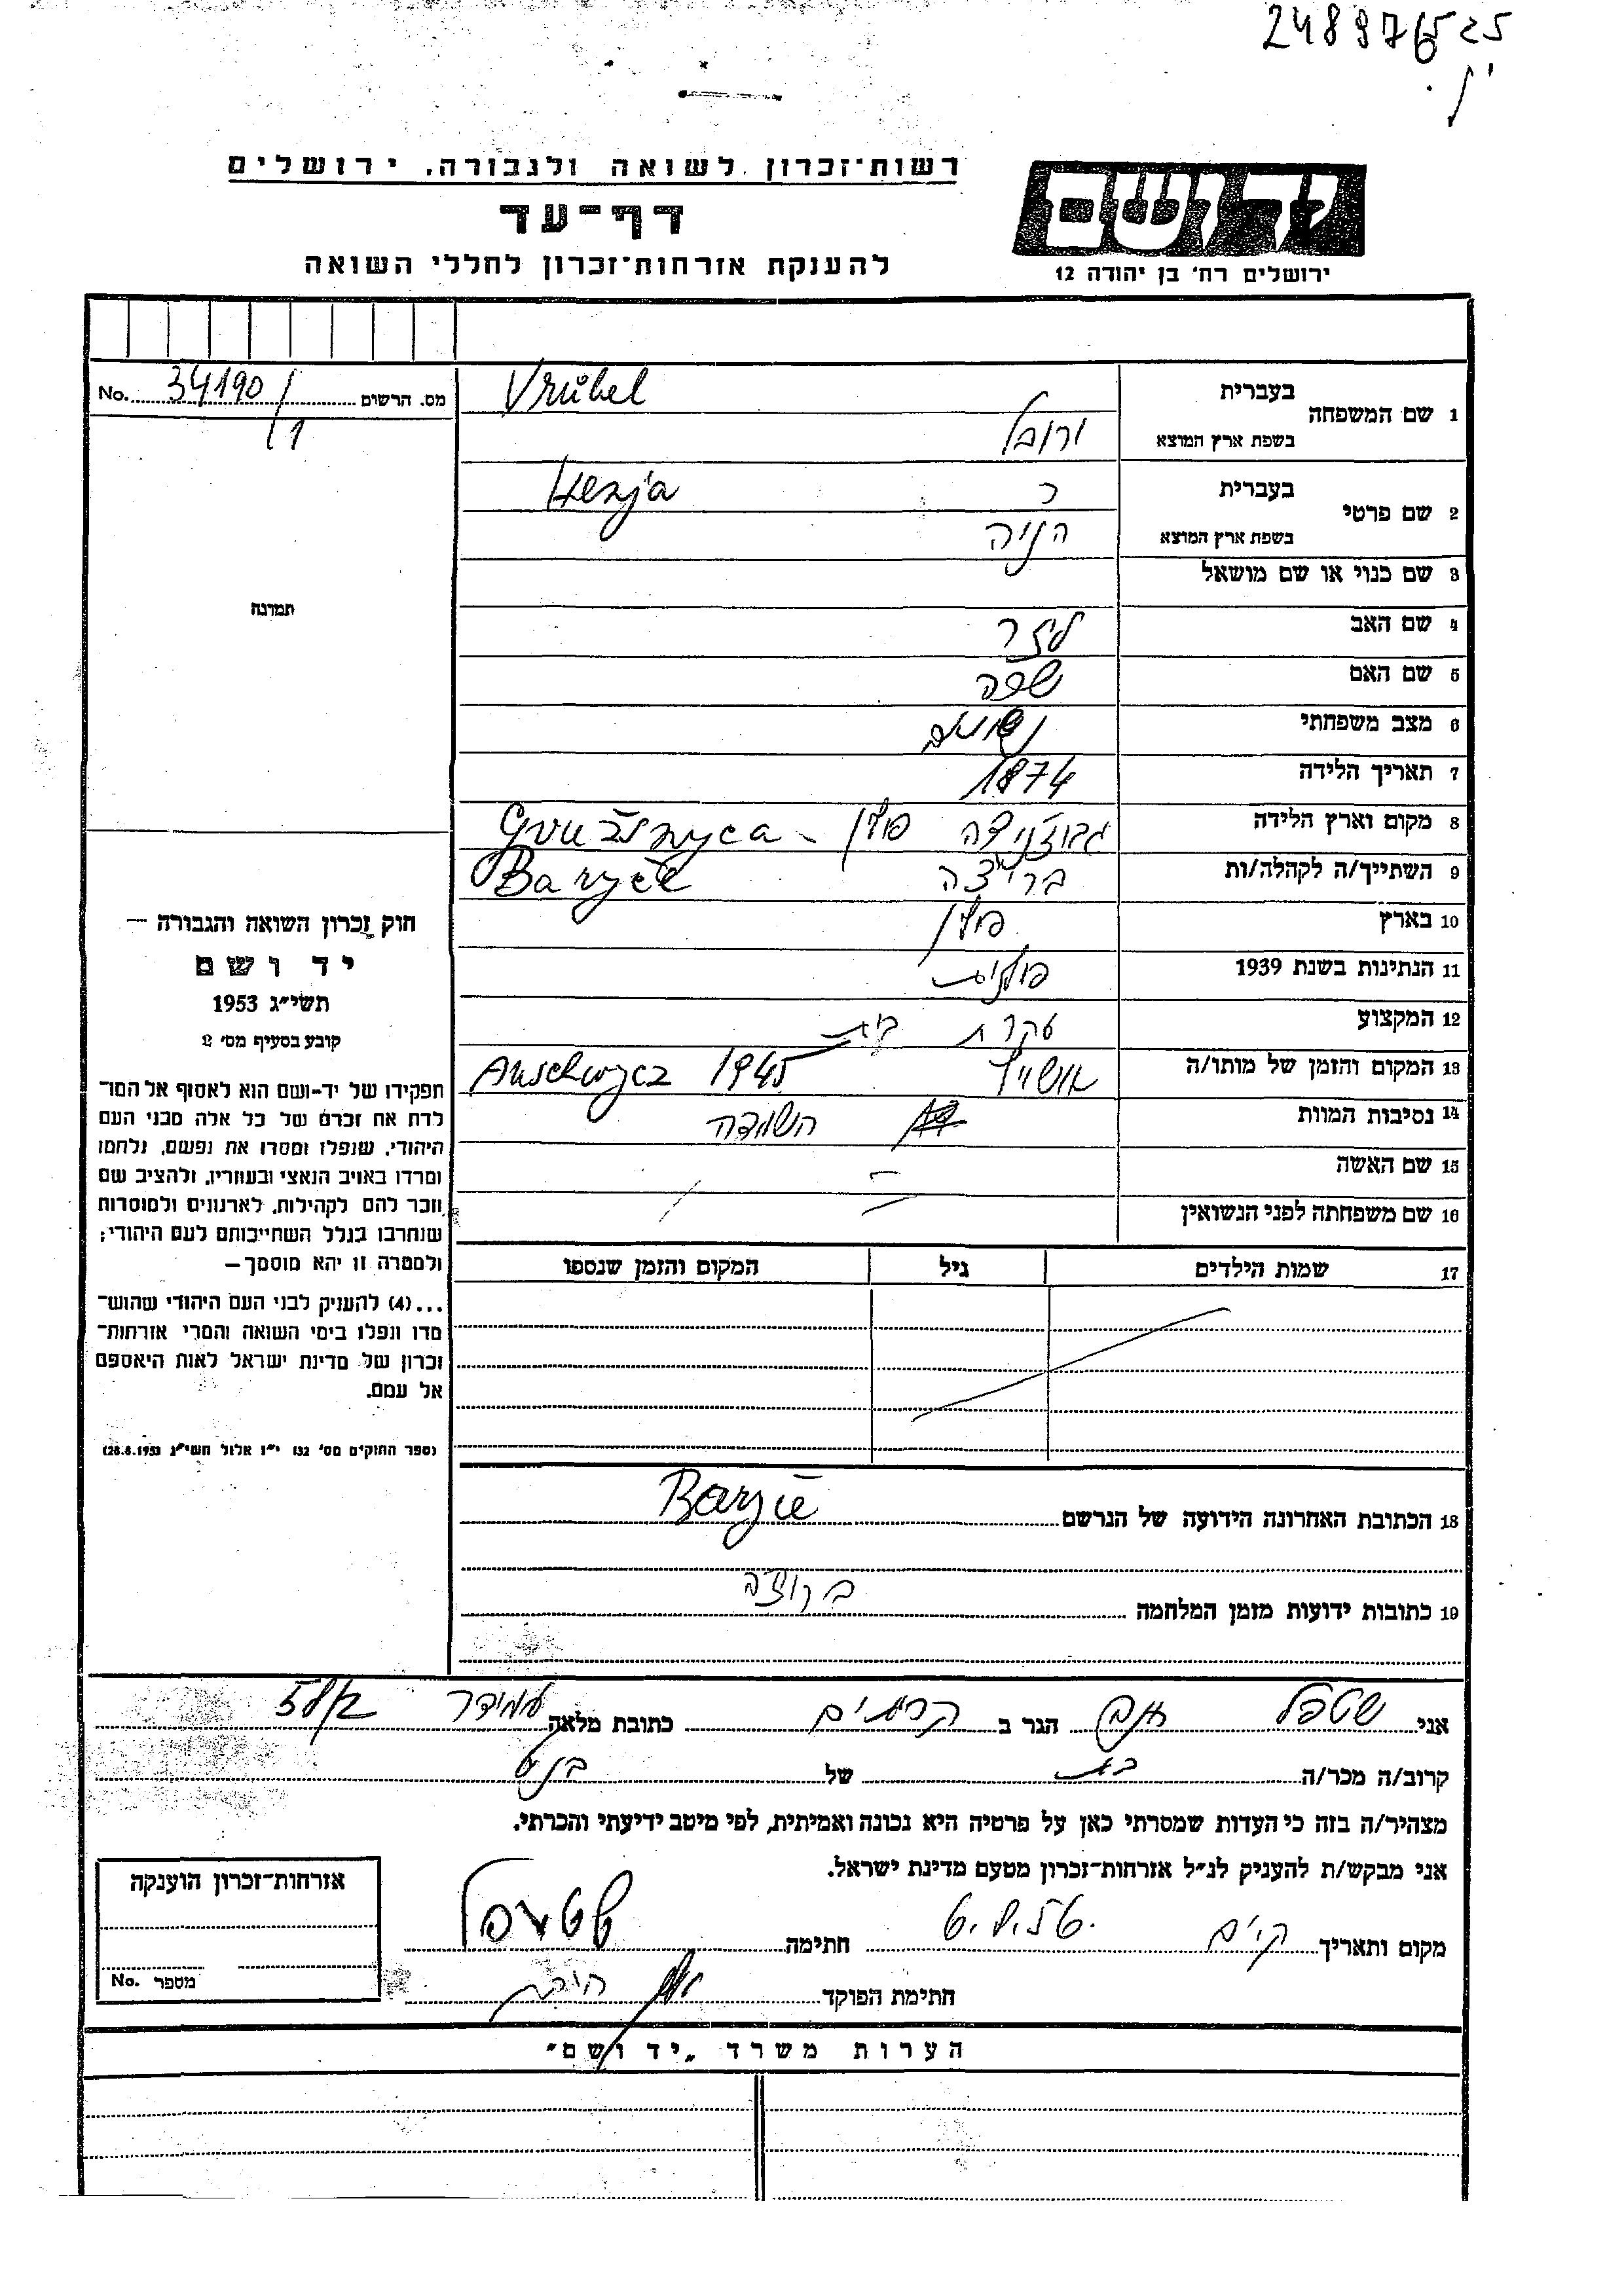 248 97625
רשות־זכרון לשואה ולגבורה, ירושלים
דף־עד
להענקת אזרחות־זכרון לחללי השואה
יד ושם
ירושלים רח׳ בן יהודה 12
No. 34190/1 מס. הרשום
תמונה
חוק זכרון השואה והגבורה —
יד ושם
תשי״ג 1953
קובע בסעיף מס׳ 2
תפקידו של יד-ושם הוא לאסוף אל המו־
לדת את זכרם של כל אלה מבני העם
היהודי, שנפלו ומסרו את נפשם, נלחמו
ומרדו באויב הנאצי ובעוזריו, ולהציב שם
וזכר להם לקהילות, לארגונים ולמוסדות
שנחרבו בגלל השתייכותם לעם היהודי;
ולמטרה זו יהא מוסמך —
...(4) להעניק לבני העם היהודי שהוש־
מדו ונפלו בימי השואה והמרי אזרחות־
זכרון של מדינת ישראל לאות היאספם
אל עמם.
(ספר החוקים מס׳ 132 י״ז אלול תשי״ג 28.8.1953)
1 שם המשפחה בעברית Vrůbel
בשפת ארץ המוצא ורובל
2 שם פרטי בעברית Henja
בשפת ארץ המוצא הניה
3 שם כנוי או שם מושאל
4 שם האב לזר
5 שם האם
6 מצב משפחתי נשואים
7 תאריך הלידה 1874
8 מקום וארץ הלידה פולין
9 השתייך/ה לקהלה/ות בריצה
10 בארץ פולין
11 הנתינות בשנת 1939 פולנית
12 המקצוע עקרת בית
13 המקום והזמן של מותו/ה אושויץ Auschwycz 1945
14 נסיבות המוות השמדה
15 שם האשה —
16 שם משפחתה לפני הנשואין —
17 שמות הילדים גיל המקום והזמן שנספו
18 הכתובת האחרונה הידועה של הנרשם
19 כתובות ידועות מזמן המלחמה
אני שטפל הגר ב כתובת מלאה עמידר 58
קרוב/ה מכר/ה בת של
מצהיר/ה בזה כי העדות שמסרתי כאן על פרטיה היא נכונה ואמיתית, לפי מיטב ידיעתי והכרתי.
אני מבקש/ת להעניק לנ״ל אזרחות-זכרון מטעם מדינת ישראל.
מקום ותאריך חתימה
חתימת הפוקד
אזרחות-זכרון הוענקה
מספר No.
הערות משרד „יד ושם״